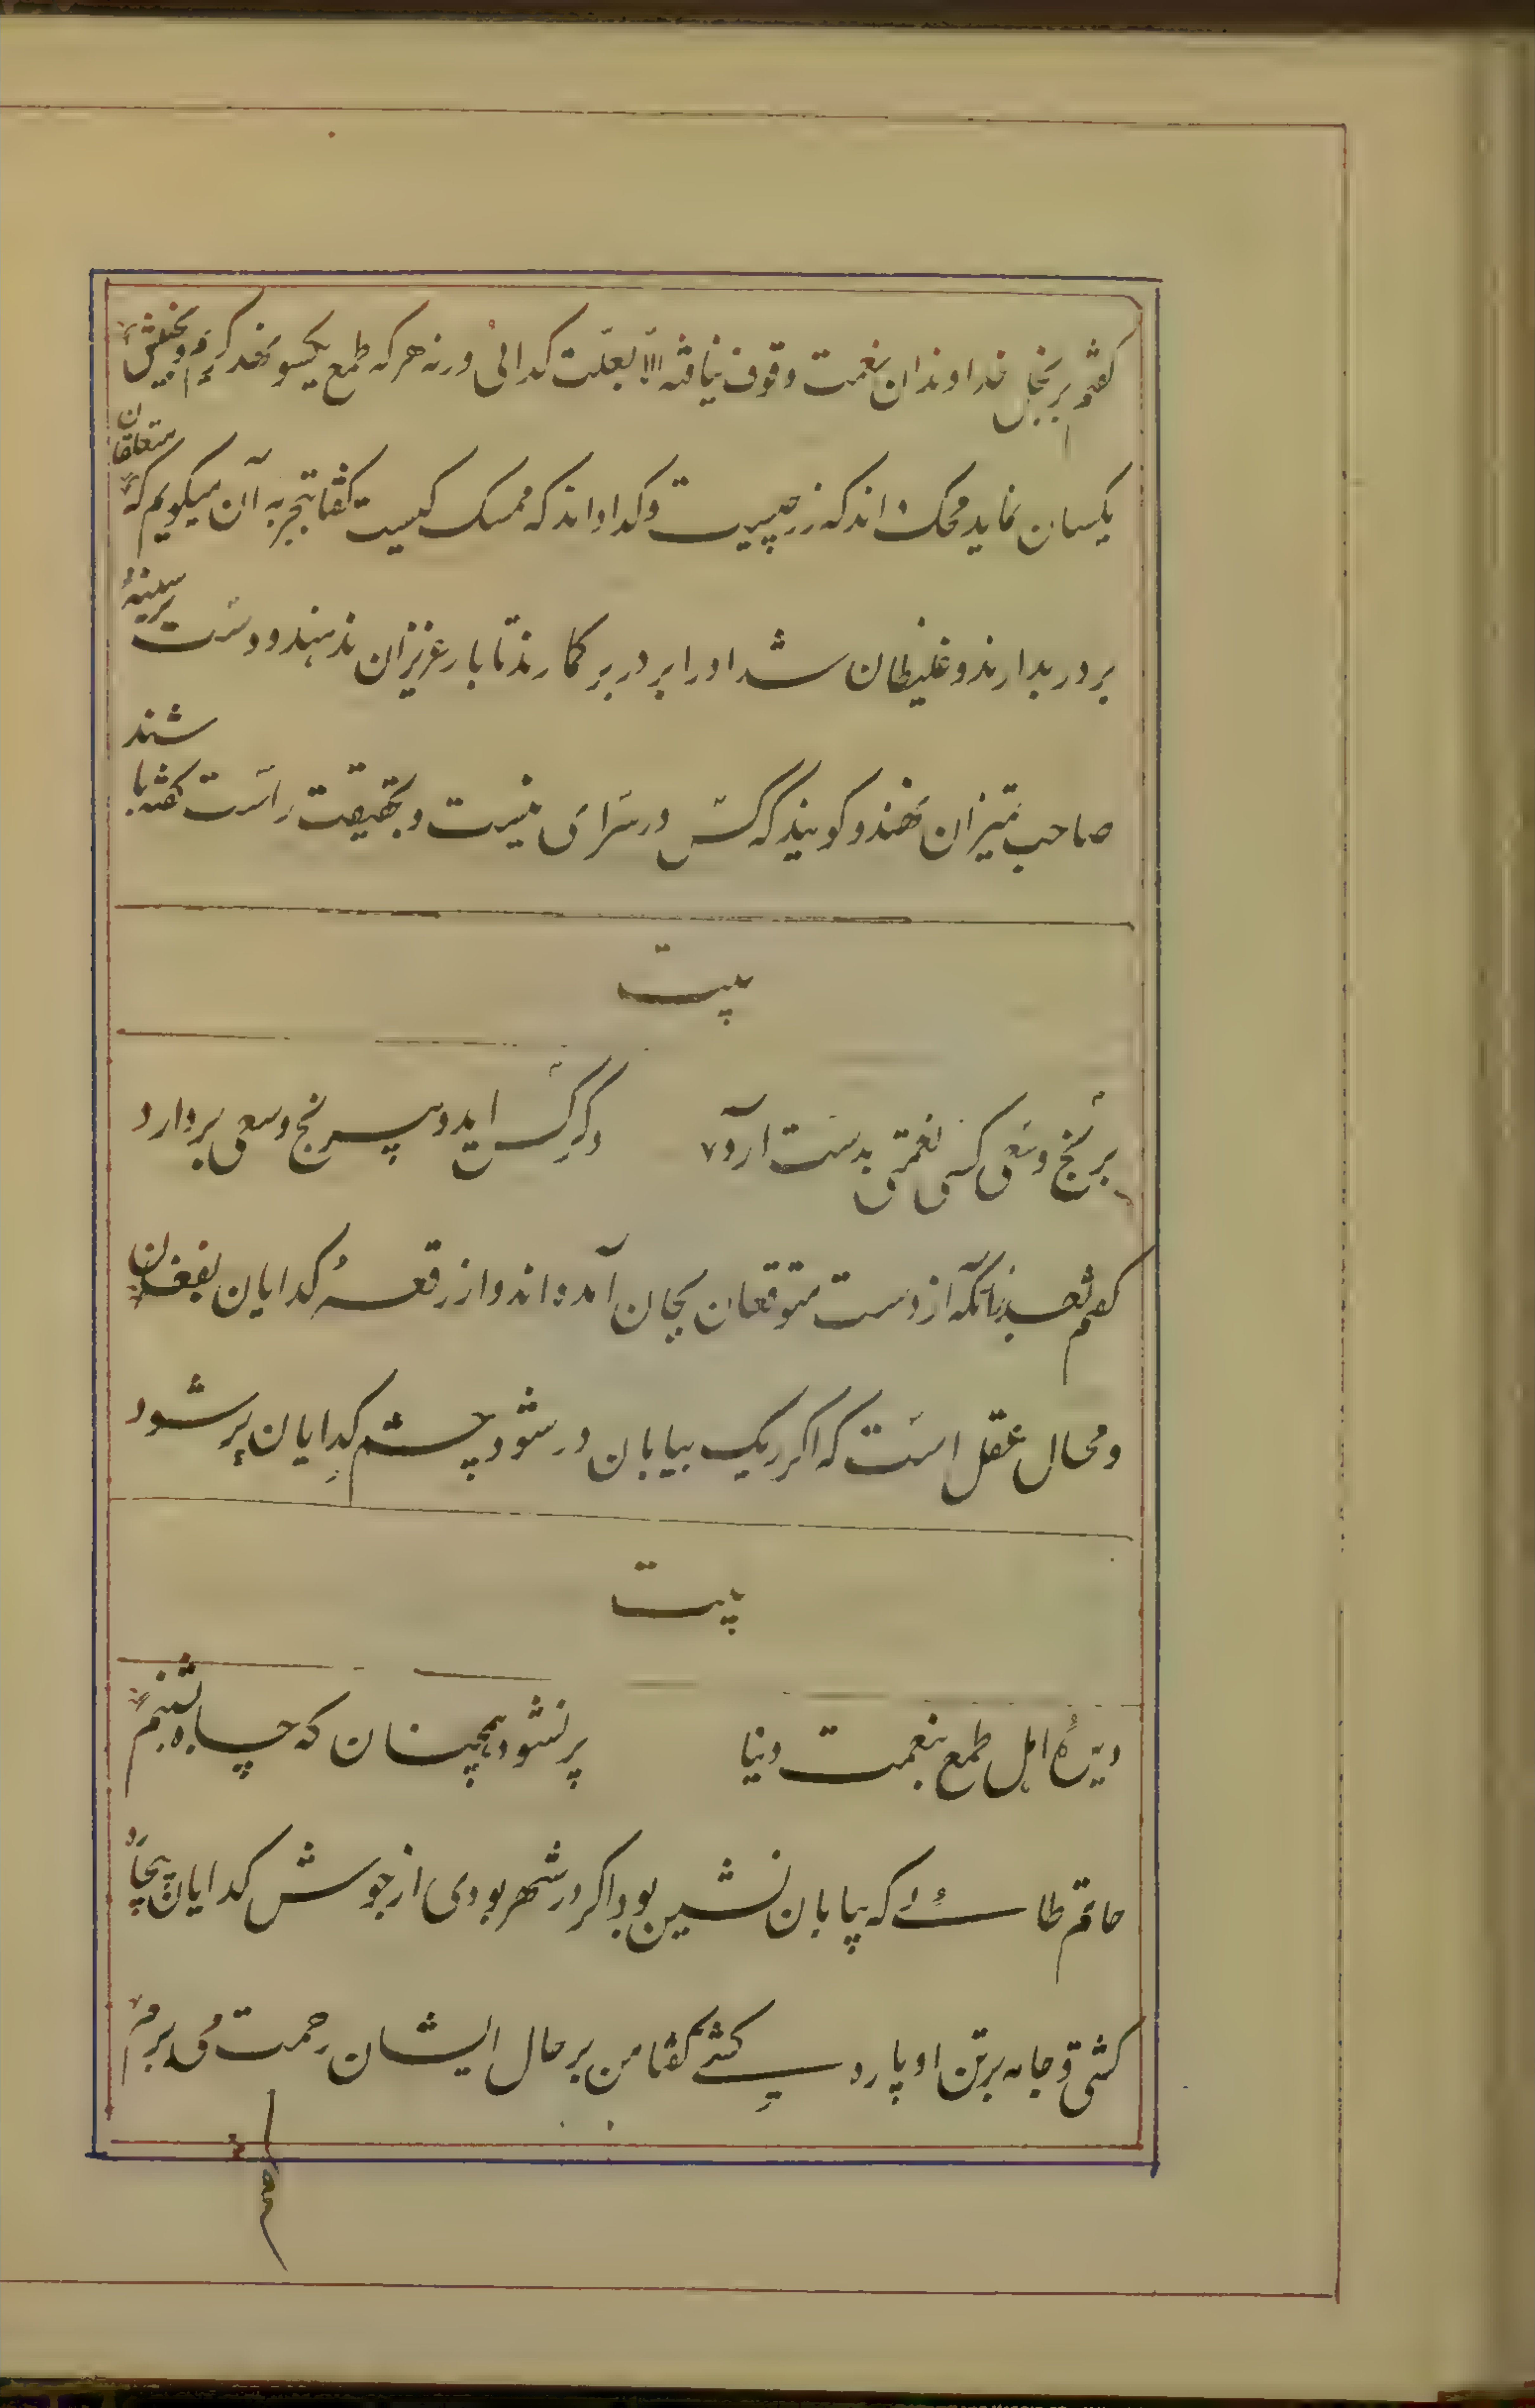 کفتم بر بخل خداوندان نعمت وقوف نیافتهٔ الّا بعلّت کدائی ورنه هرکه طمع یکیسو نهد کریم و بخیلش
یکسان نماید محک داند که زر چیست و کدا داند که ممسک کیست کفتا بتجربه آن میکویم که متعلقان
بر در بدارند و غلیظان شداد را بر در بر کمارند تا بار عزیزان ندهند و دست بر سینهٔ
صاحب تمیزان نهند و کویند که کس در سرای نیست و بحقیقت راست کفته باشند
بیت
برنج و سعی کسی نعمتی بدست آرد
دکر کس اید و بی رنج و سعی بردارد
کفتم بعذر آنکه از دست متوقعان بجان آمده اند و از رقعهٔ کدایان بفغان
و محال عقل است که اکر ریک بیابان در شود چشم کدایان پر شود
بیت
دیدهٔ اهل طمع بنعمت دنیا
پر نشود همچنان که چاه بشبنم
حاتم طائی که بیابان نشین بود اکر در شهر بودی از جوش کدایان بیچاره
کشتی و جامه بر تن او پاره کشتی کفتا من بر حال ایشان رحمت می برم